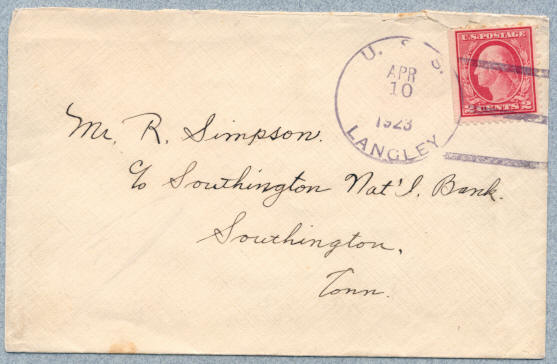 U. S. S.
APR
10
1923
LANGLEY
U.S. POSTAGE
2 CENTS 2
Mr. R. Simpson.
c/o Southington Nat'l. Bank.
Southington,
Conn.